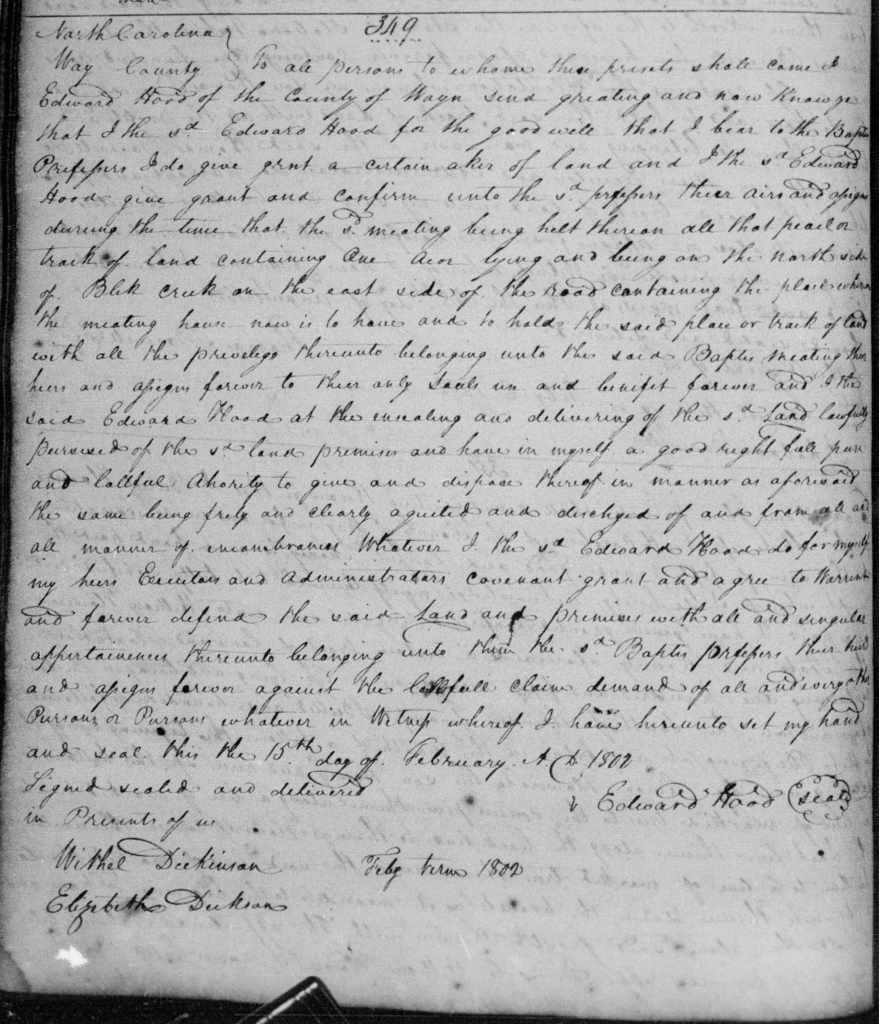 349
North Carolina
Way County To all persons to whome these presets shall come I
Edward Hood of the County of Wayn send greating and now Know ye
that I the sd Edward Hood for the good will that I bear to the Baptis
Prefessers I do give grnt a certain aker of land and I the sd Edward
Hood give grant and confirm unto the sd prefessers their airs and assigns
during the time that the sd meating being helt thereon all that pearl or
track of land containing One Acor lying and being on the north side
of Blk creek on the east side of the road containing the place wheron
the meating house now is to have and to hold the said place or track of land
with all the privelegs thereunto belonging unto the said Baptis meating their
heirs and assigns forever to their only use and benifit forever and I the
said Edward Hood at the ensealing and delivering of the sd Land lawfully
of the sd land premises and have in myself a good right full
and lallful Ahority to give and dispose thereof in manner as aforesaid
the same being frely and clearly aquited and of and from all and
all manner of incombrances Whatever I the sd Edward Hood do for myself
my heirs Executors and Administrators covenant grant and agree to Warrent
and forever defend the said Land and premises with all and singular
appertainences thereunto belonging unto them the sd Baptis prefessers their heirs
and assigns forever against the full claim demand of all and every other
Pursons or Pursons whatever in Witness whereof I have hereunto set my hand
and seal this the 15th day of February A D 1802
Signed sealed and delivered
Edward Hood seal
in Presents of us
Withel Dickinson Feby term 1802
Elizebeth Dickson